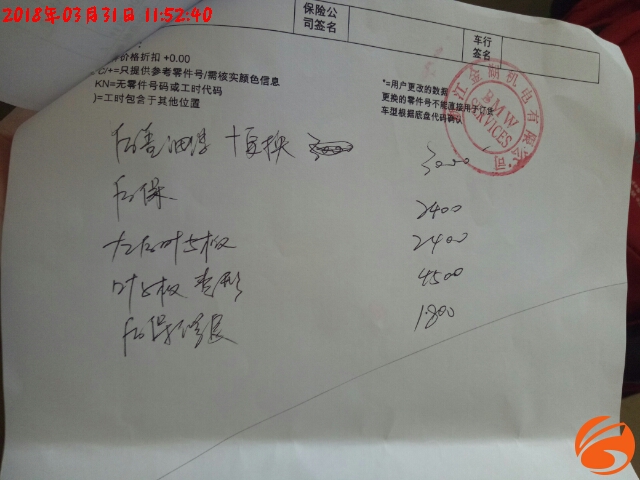 2018年03月31日 11:52:40
保险公司签名
车行签名
价格折扣 +0.00
C/+=只提供参考零件号/需核实颜色信息
KN=无零件号码或工时代码
)=工时包含于其他位置
*=用户更改的数据
更换的零件号不能直接用于订货
车型根据底盘代码确认
江金湖机电有限公司
BMW
SERVICES
后盖油漆 +更换 3000
后保 2400
左后叶子板 2400
叶子板整形 4500
后保 1800